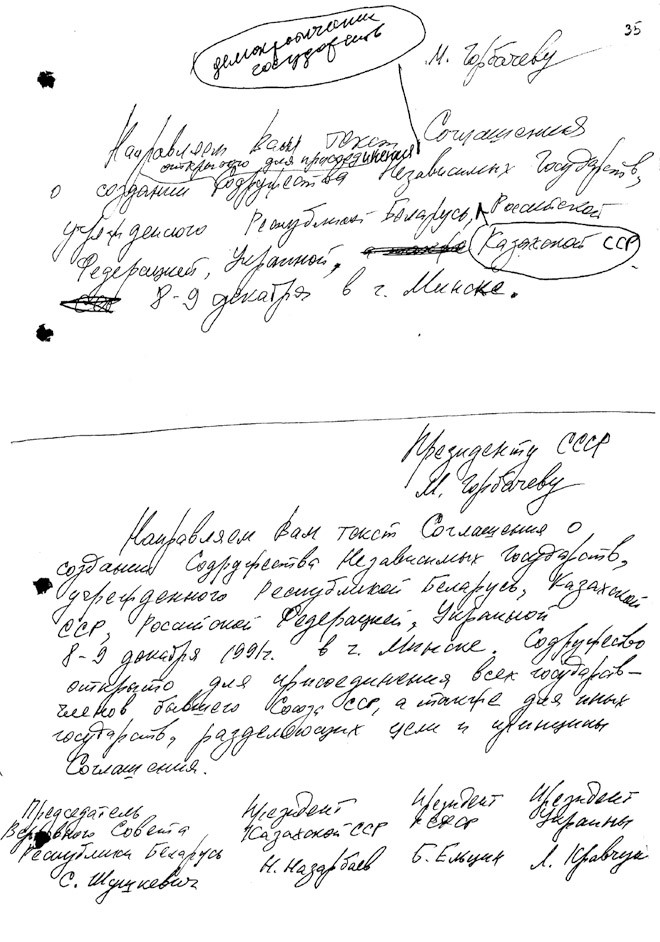 35
демократических
государств
М. Горбачеву
Направляем Вам текст Соглашения
открытого для присоединения
о создании Содружества Независимых Государств,
учрежденного Республикой Беларусь, Российской
Федерацией, Украиной, Казахской ССР
8-9 декабря в г. Минске.
Президенту СССР
М. Горбачеву
Направляем Вам текст Соглашения о
создании Содружества Независимых Государств,
учрежденного Республикой Беларусь, Казахской
ССР, Российской Федерацией, Украиной
8-9 декабря 1991г. в г. Минске. Содружество
открыто для присоединения всех государств-
членов бывшего Союза ССР, а также для иных
государств, разделяющих цели и принципы
Соглашения.
Председатель Президент Президент Президент
Верховного Совета Казахской ССР РСФСР Украины
Республики Беларусь Н. Назарбаев Б. Ельцин Л. Кравчук
С. Шушкевич